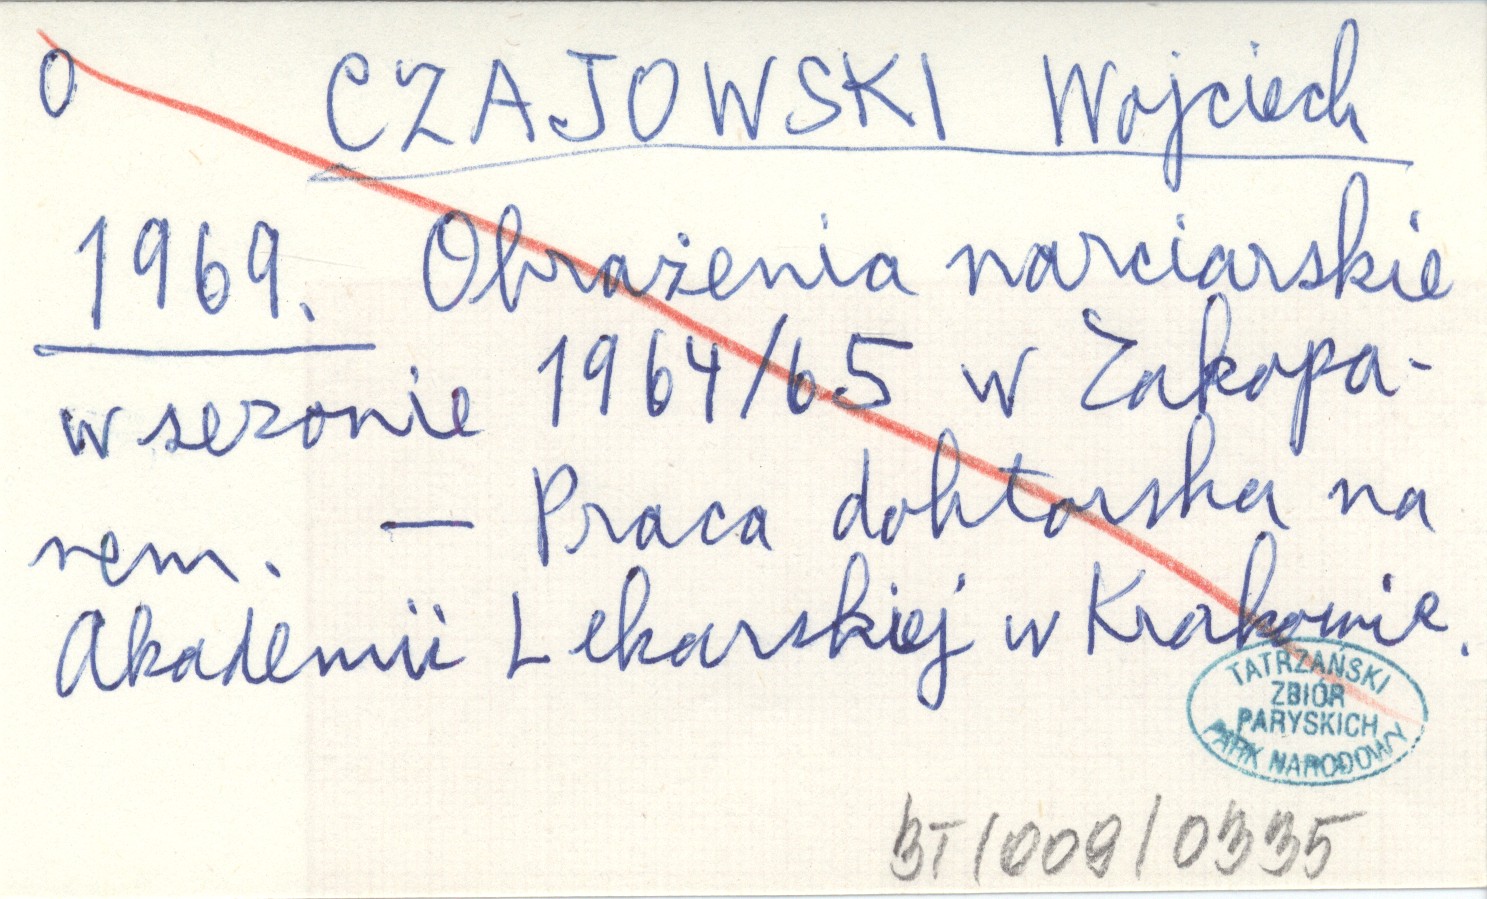 O CZAJOWSKI Wojciech
1969. Obrażenia narciarskie
w sezonie 1964/65 w Zakopa-
nem. — Praca doktorska na
Akademii Lekarskiej w Krakowie.
TATRZAŃSKI
ZBIÓR
PARYSKICH
PARK NARODOWY
BT/009/0335